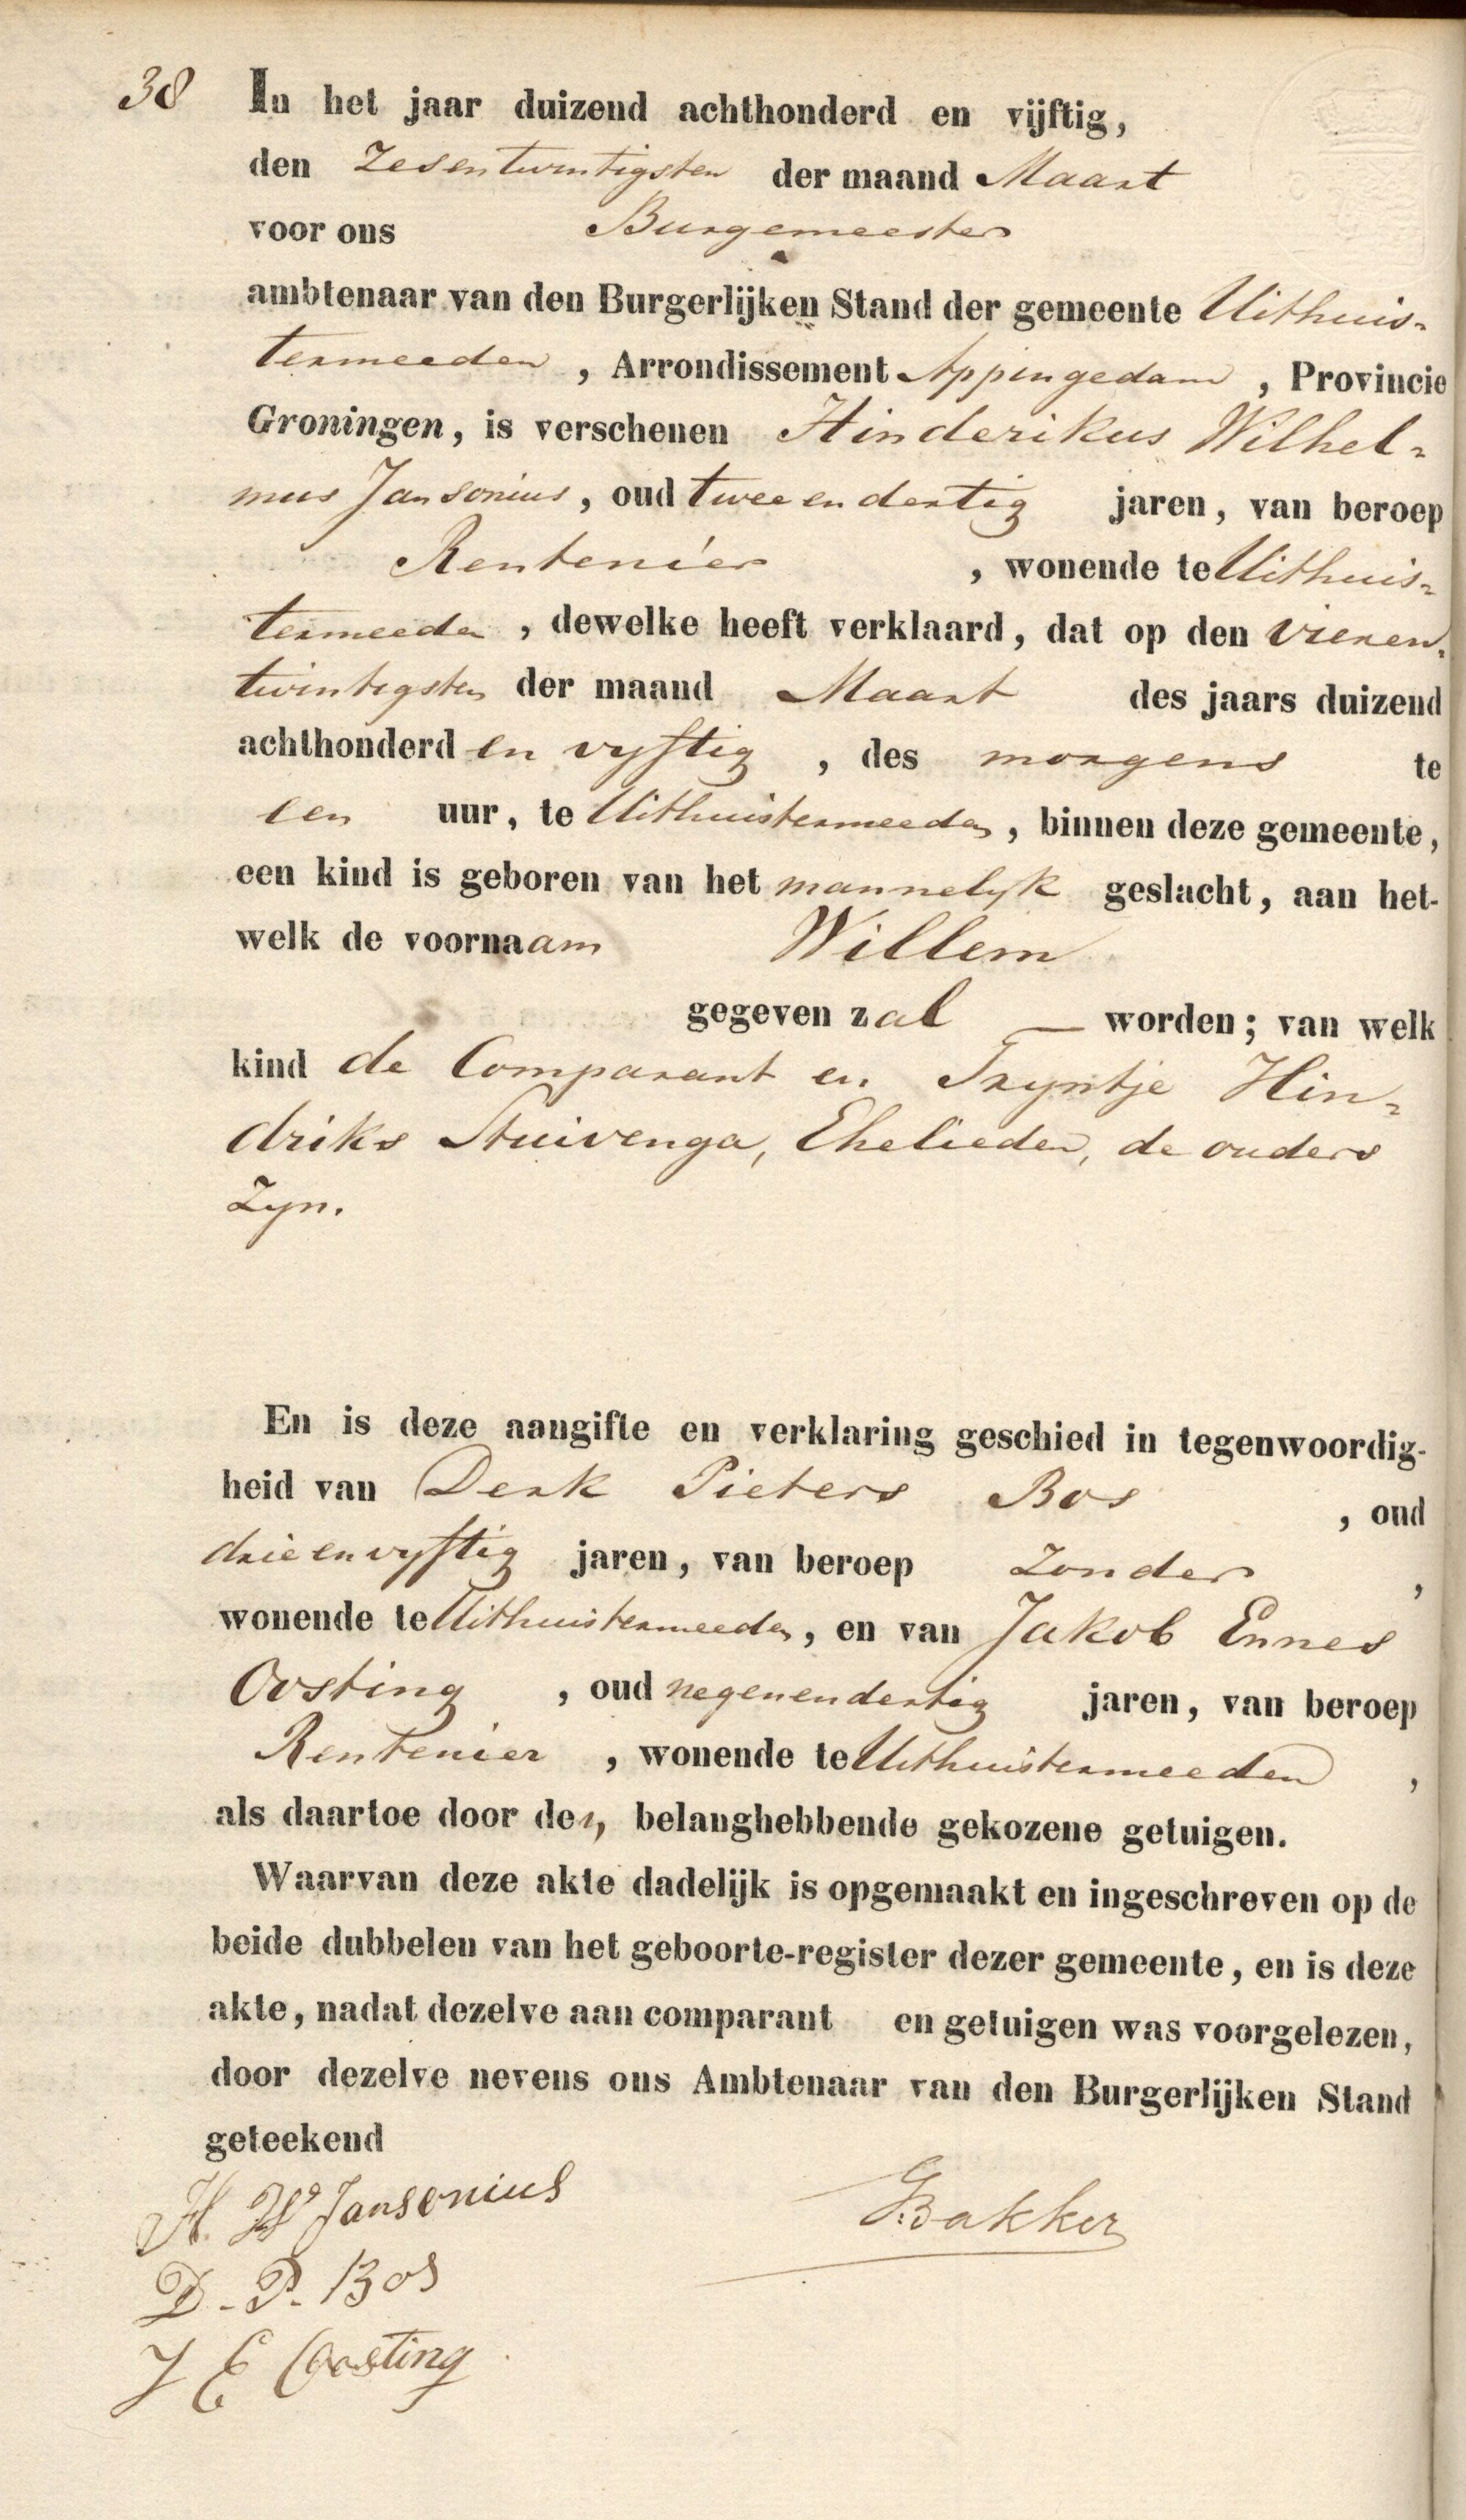 38 In het jaar duizend achthonderd en vijftig,
den Zesentwintigsten der maand Maart
voor ons Burgemeester
ambtenaar van den Burgerlijken Stand der gemeente Uithuis-
termeeden, Arrondissement Appingedam, Provincie
Groningen, is verschenen Hinderikus Wilhel-
mus Jansonius, oud twee en dertig jaren, van beroep
Rentenier, wonende te Uithuis-
termeeden, dewelke heeft verklaard, dat op den vieren-
twintigsten der maand Maart des jaars duizend
achthonderd en vyftig, des morgens te
een uur, te Uithuistermeeden, binnen deze gemeente,
een kind is geboren van het mannelyk geslacht, aan het-
welk de voornaam Willem
gegeven zal — worden; van welk
kind de Comparant en Tryntje Hin-
driks Stuivenga, Ehelieden, de ouders
zyn.
En is deze aangifte en verklaring geschied in tegenwoordig-
heid van Derk Pieters Bos, oud
drieenvyftig jaren, van beroep Zonder,
wonende te Uithuistermeeden, en van Jakob Ennes
Oosting, oud negenendertig jaren, van beroep
Rentenier, wonende te Uithuistermeeden,
als daartoe door den belanghebbende gekozene getuigen.
Waarvan deze akte dadelijk is opgemaakt en ingeschreven op de
beide dubbelen van het geboorte-register dezer gemeente, en is deze
akte, nadat dezelve aan comparant en getuigen was voorgelezen,
door dezelve nevens ons Ambtenaar van den Burgerlijken Stand
geteekend
H. W Jansonius
GBakker
D. P. Bos
J E Oosting